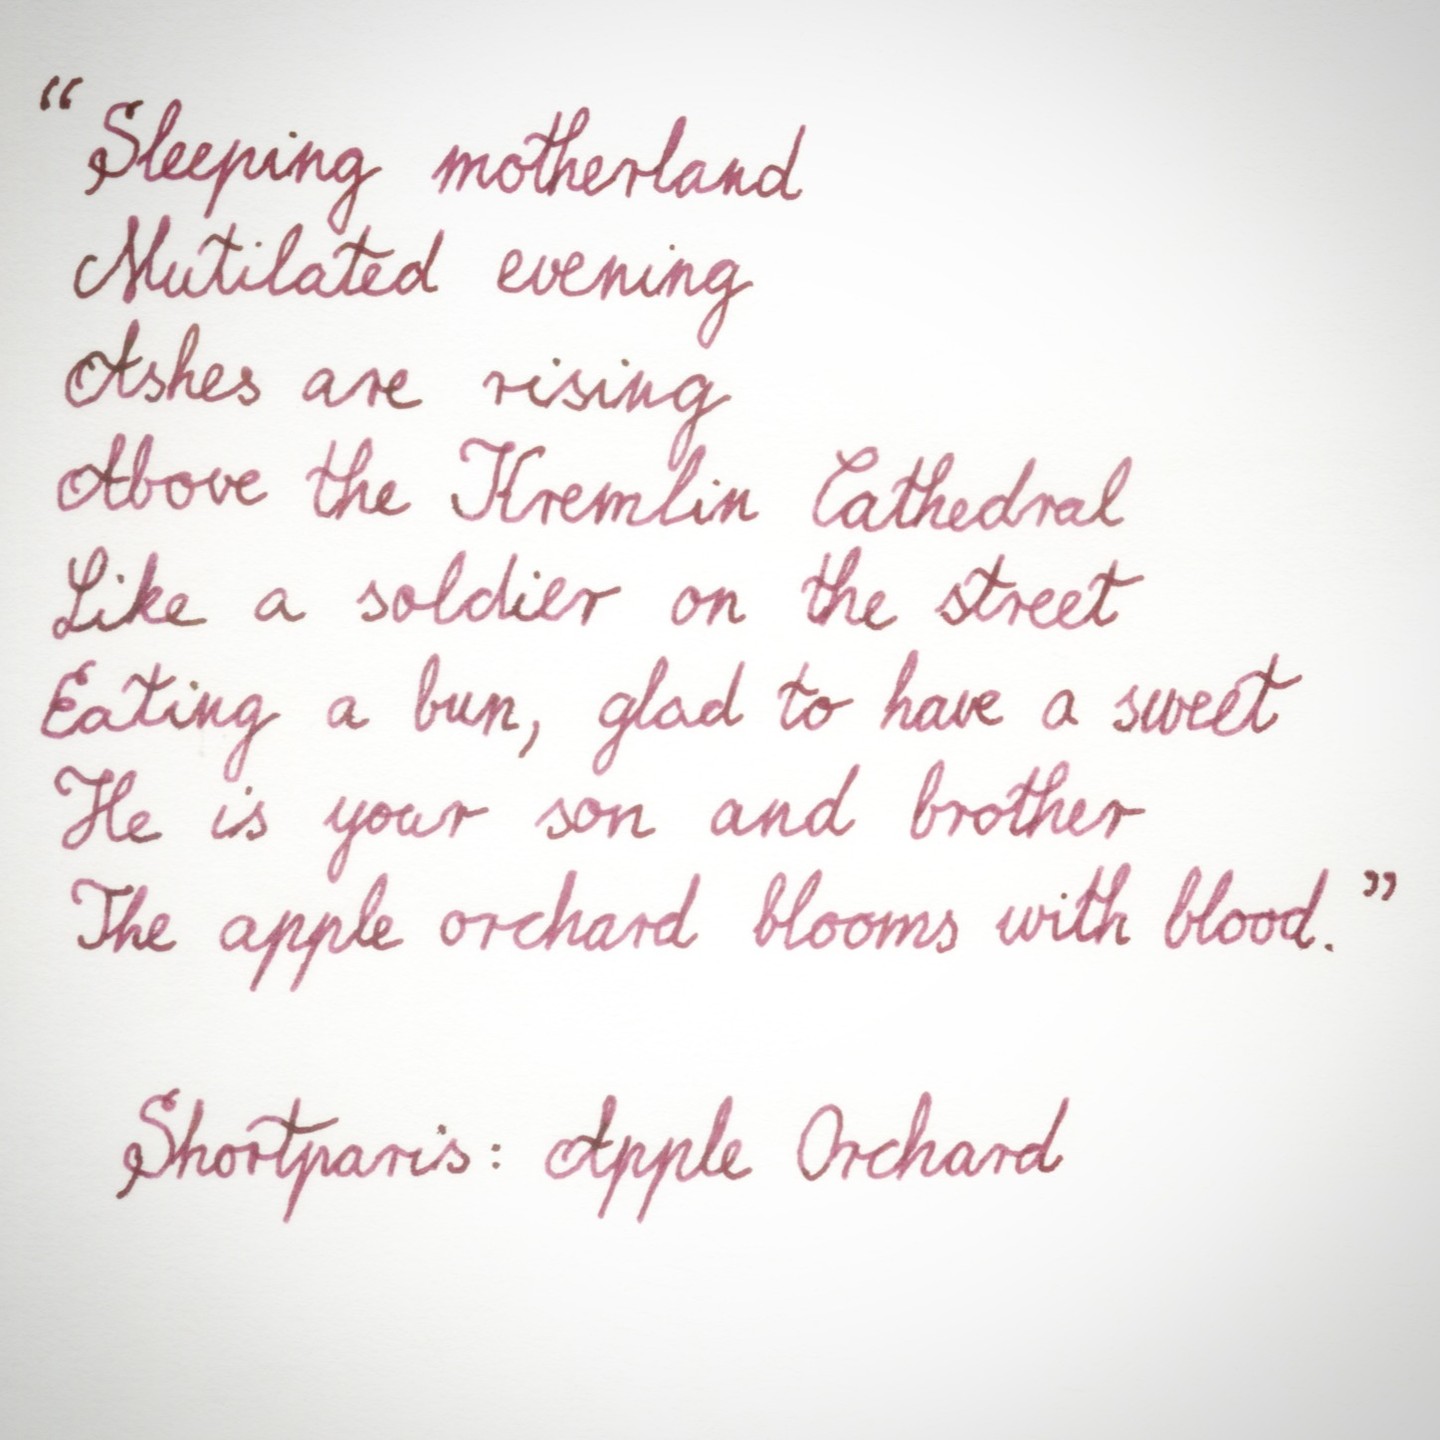 “Sleeping motherland
Mutilated evening
Ashes are rising
Above the Kremlin Cathedral
Like a soldier on the street
Eating a bun, glad to have a sweet
He is your son and brother
The apple orchard blooms with blood.”
Shortparis: Apple Orchard